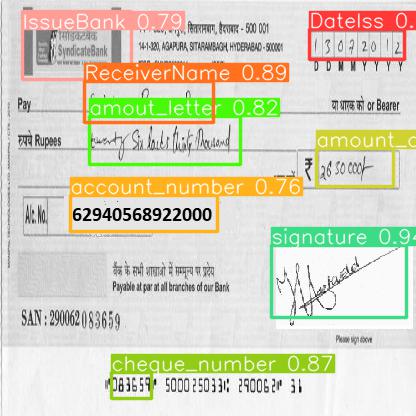 IssueBank 0.79
सिंडिकेटबैंक
SyndicateBank
सितारामबाग, हैदराबाद - 500 001
14-1-320, AGAPURA, SITARAMBAGH, HYDERABAD -500001
DateIss 0.
13072012
D D M M Y Y Y Y
ReceiverName 0.89
Pay
या धारक को or Bearer
amout_letter 0.82
रुपये Rupees
Twenty Six lacks thirty Thousand
amount_
₹ 2630000/-
account_number 0.76
A/c. No.
62940568922000
signature 0.94
बैंक के सभी शाखाओं में सममूल्य पर प्रदेय
Payable at par at all branches of our Bank
SAN : 290062083659
Please sign above
cheque_number 0.87
⑈083659⑈ 500025033⑆ 290062⑈ 31